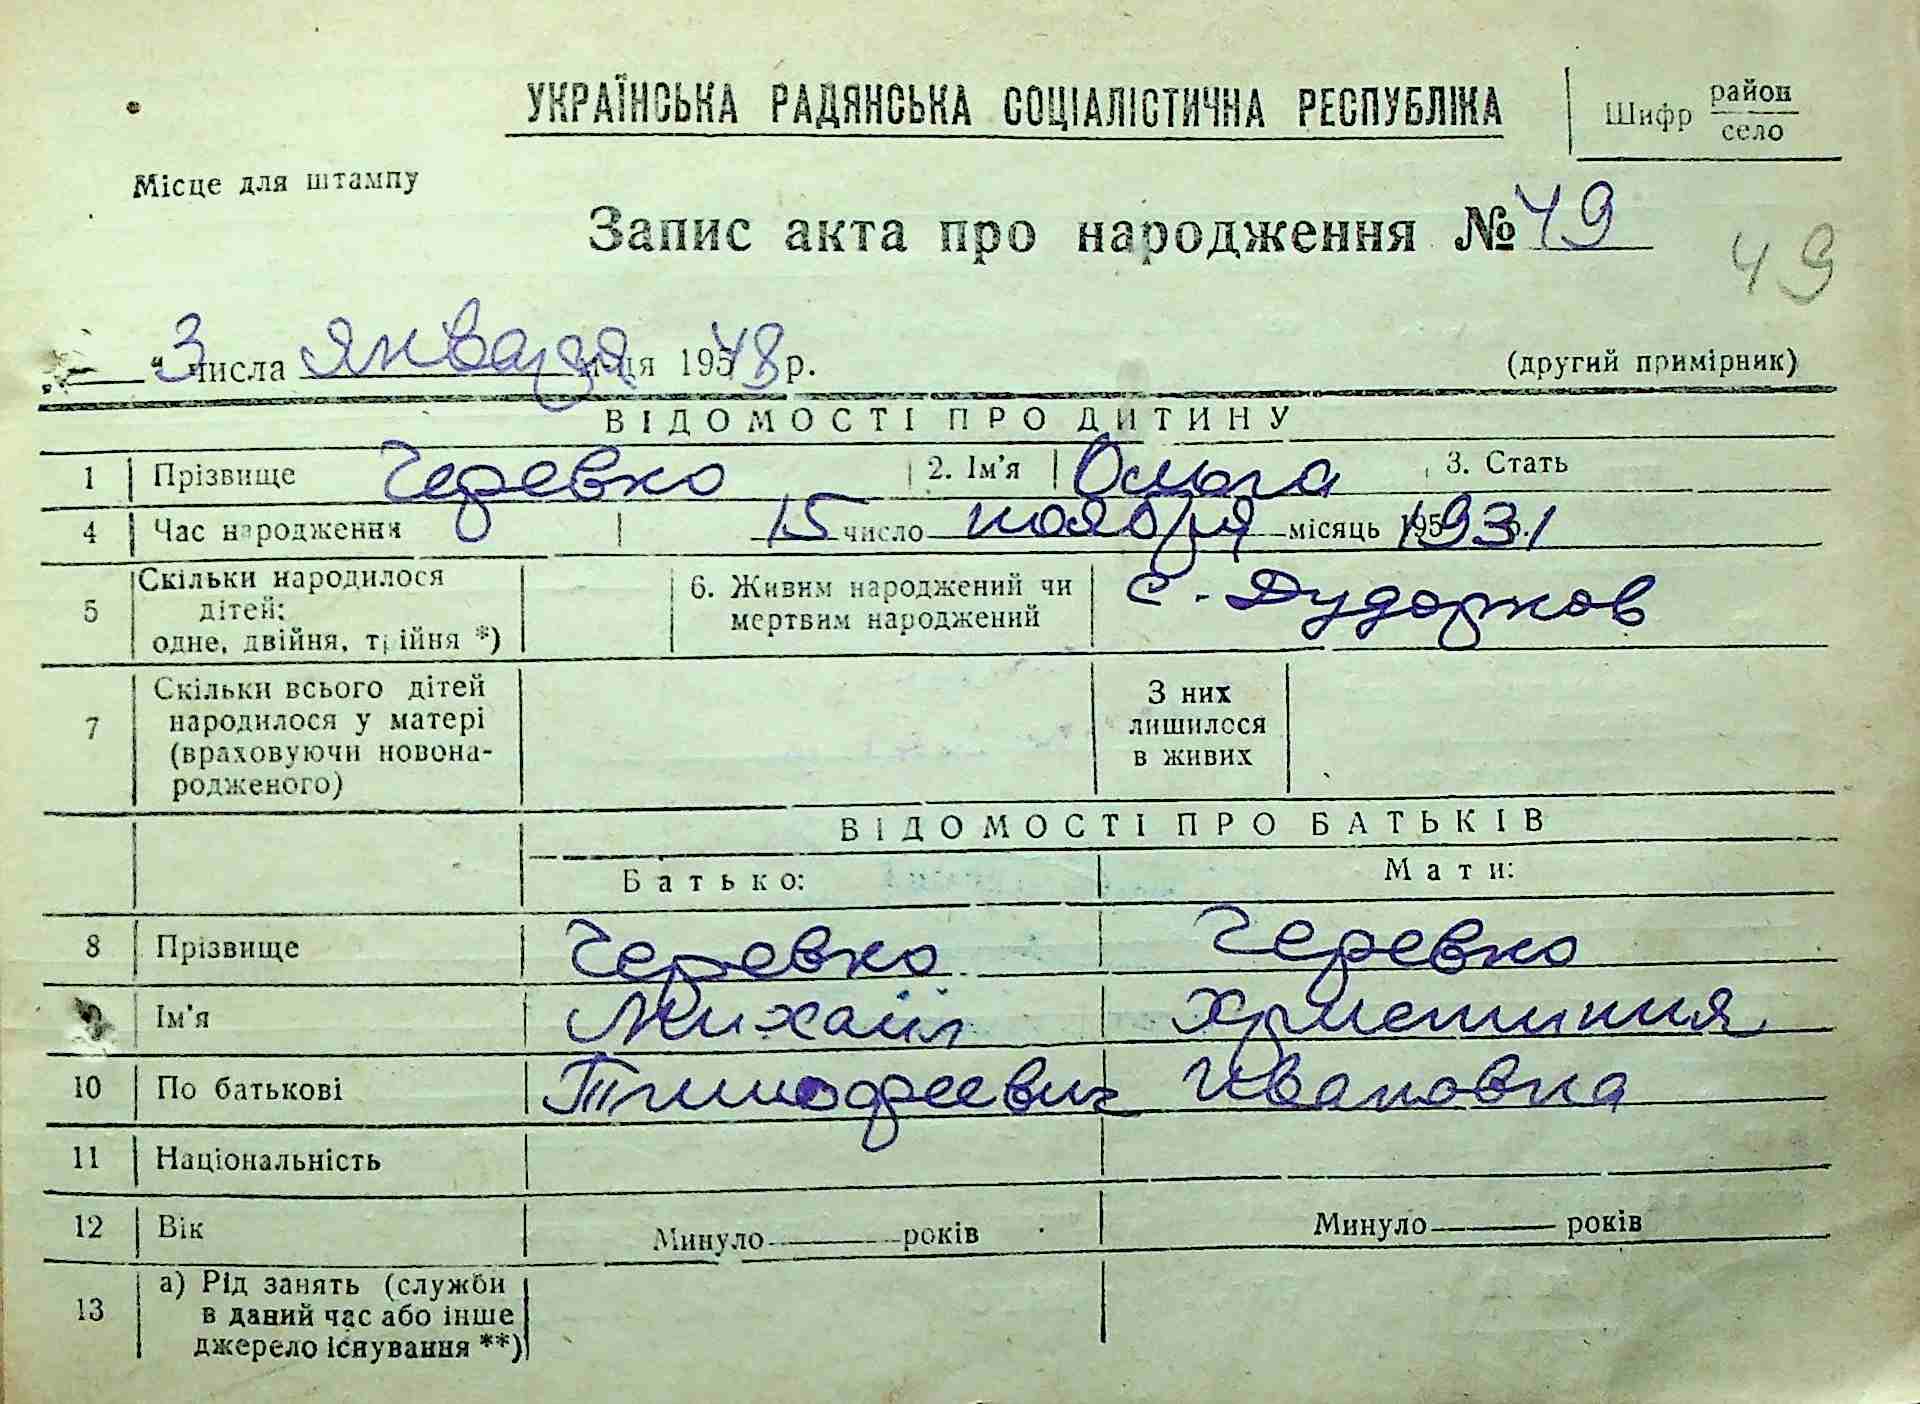 УКРАЇНСЬКА РАДЯНСЬКА СОЦІАЛІСТИЧНА РЕСПУБЛІКА
Шифр район
село
Місце для штампу
Запис акта про народження № 49
49
„ “ 3 числа января місяця 195 48 р.
(другий примірник)
ВІДОМОСТІ ПРО ДИТИНУ
1 Прізвище Черевко 2. Ім'я Ольга 3. Стать
4 Час народження 15 число ноября місяць 195 1931 р.
5 Скільки народилося дітей: одне, двійня, трійня *) 6. Живим народжений чи мертвим народжений с. Дударков
7 Скільки всього дітей народилося у матері (враховуючи новонародженого) З них лишилося в живих
ВІДОМОСТІ ПРО БАТЬКІВ
Батько: Мати:
8 Прізвище Черевко Черевко
9 Ім'я Михаил Християня
10 По батькові Тимофеевич Ивановна
11 Національність
12 Вік Минуло років Минуло років
13 а) Рід занять (служби в даний час або інше джерело існування **)